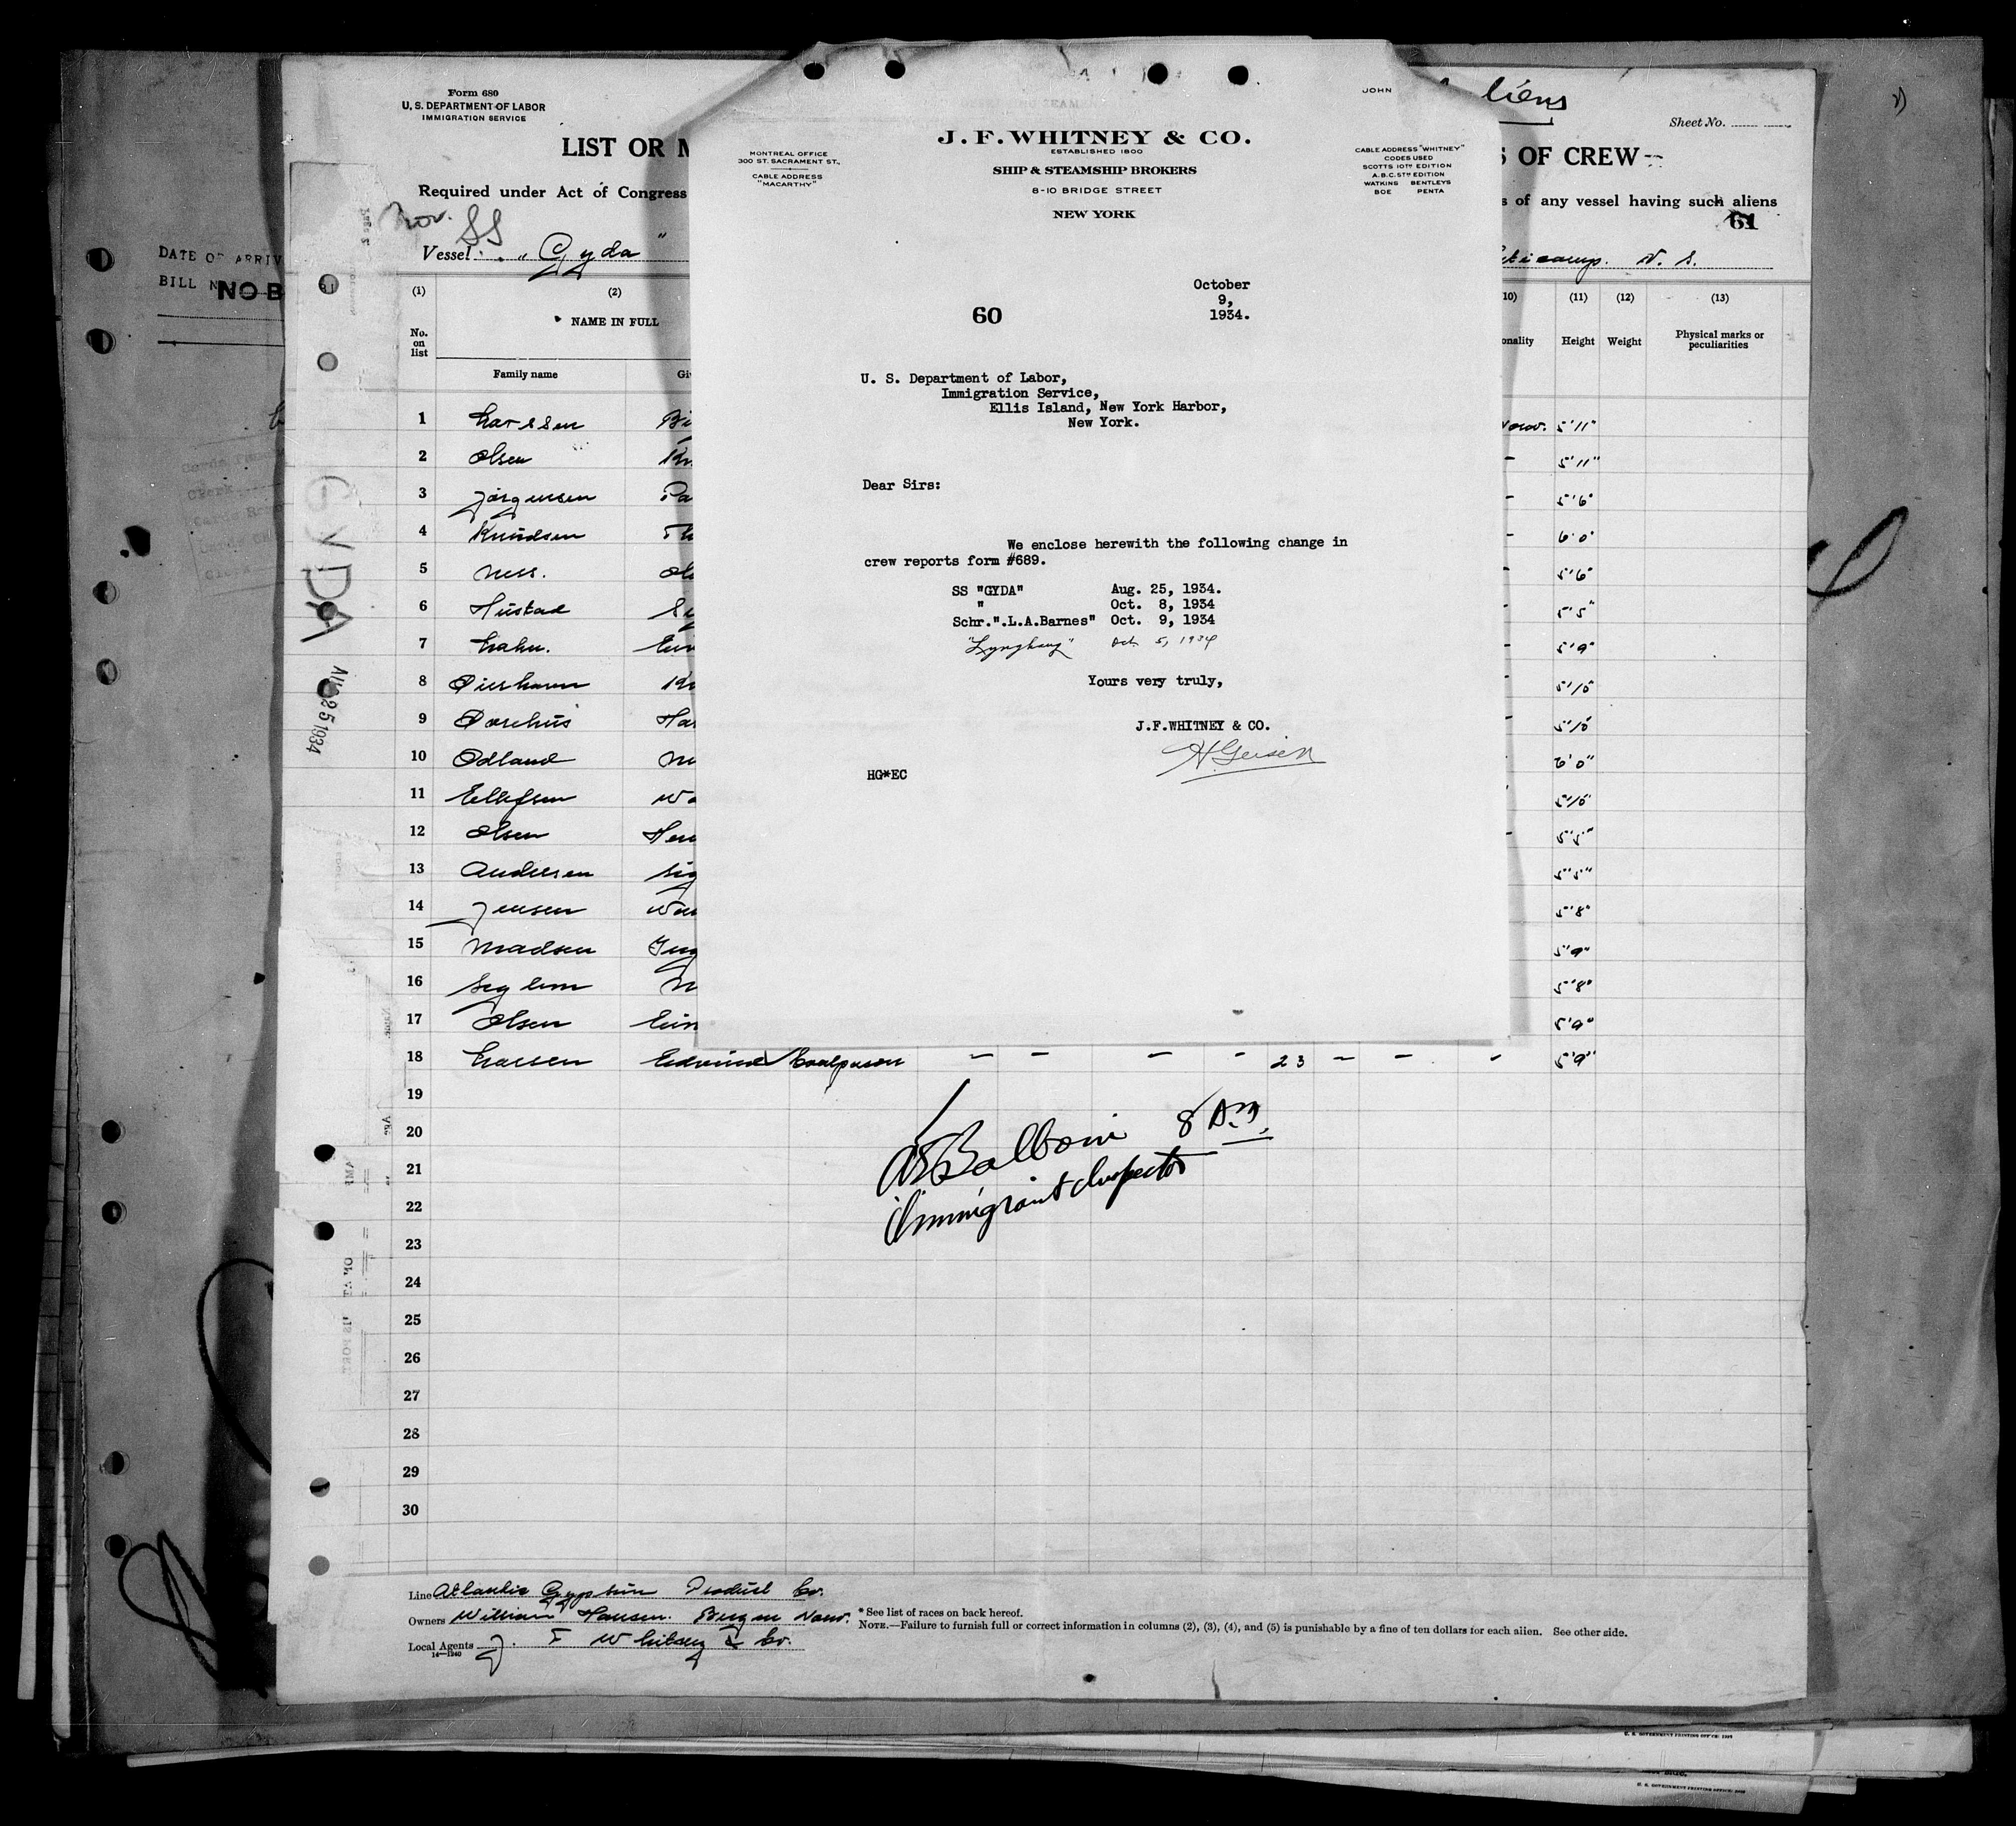 Form 680
U. S. DEPARTMENT OF LABOR
IMMIGRATION SERVICE
LIST OR M
Required under Act of Congress
Nor. SS
Vessel "Gyda"
liens
Sheet No.
S OF CREW
s of any vessel having such aliens
61
N. S.
DATE OF ARRIV
BILL N
NO B
GYDA
AUG 25 1934
JOHN
J. F. WHITNEY & CO.
ESTABLISHED 1800
SHIP & STEAMSHIP BROKERS
8-10 BRIDGE STREET
NEW YORK
MONTREAL OFFICE
300 ST. SACRAMENT ST.,
CABLE ADDRESS
"MACARTHY"
CABLE ADDRESS "WHITNEY"
CODES USED
SCOTTS 10TH EDITION
A.B.C. 5TH EDITION
WATKINS BENTLEYS
BOE PENTA
October
9,
1934.
60
U. S. Department of Labor,
Immigration Service,
Ellis Island, New York Harbor,
New York.
Dear Sirs:
We enclose herewith the following change in
crew reports form #689.
SS "GYDA" Aug. 25, 1934.
" Oct. 8, 1934
Schr.".L.A.Barnes" Oct. 9, 1934
"Lynghaug" Oct 5, 1934
Yours very truly,
J.F.WHITNEY & CO.
H Geisen
HG*EC
(1) (2) 10) (11) (12) (13)
No. on list
NAME IN FULL
Family name Gi
onality Height Weight Physical marks or peculiarities
1 Larssen Bi Norw. 5'11"
2 Olsen Kn - 5'11"
3 Jörgensen Pa - 5'6"
4 Knudsen Th - 6'0"
5 Ness. Ol - 5'6"
6 Hustad Si - 5'5"
7 Lahn. Ein - 5'9"
8 Kn - 5'10"
9 Ha - 5'10"
10 Odland 6'0"
11 Ellefsen Wa - 5'10"
12 Olsen Hen - 5'5"
13 Andersen Sig - 5'5"
14 Jensen 5'8"
15 Madsen Ing 5'9"
16 Seglem N 5'8"
17 Olsen Ein 5'9"
18 Larsen Edvind Coalpasser - - - - 23 - - - 5'9"
19
20
21
22
23
24
25
26
27
28
29
30
Balboni 8 A.M.
Immigrant Inspector
Line Atlantic Gypsum Product Co.
Owners William Hansen. Bergen Norw.
Local Agents J. F Whitney & Co.
14—1240
* See list of races on back hereof.
NOTE.—Failure to furnish full or correct information in columns (2), (3), (4), and (5) is punishable by a fine of ten dollars for each alien. See other side.